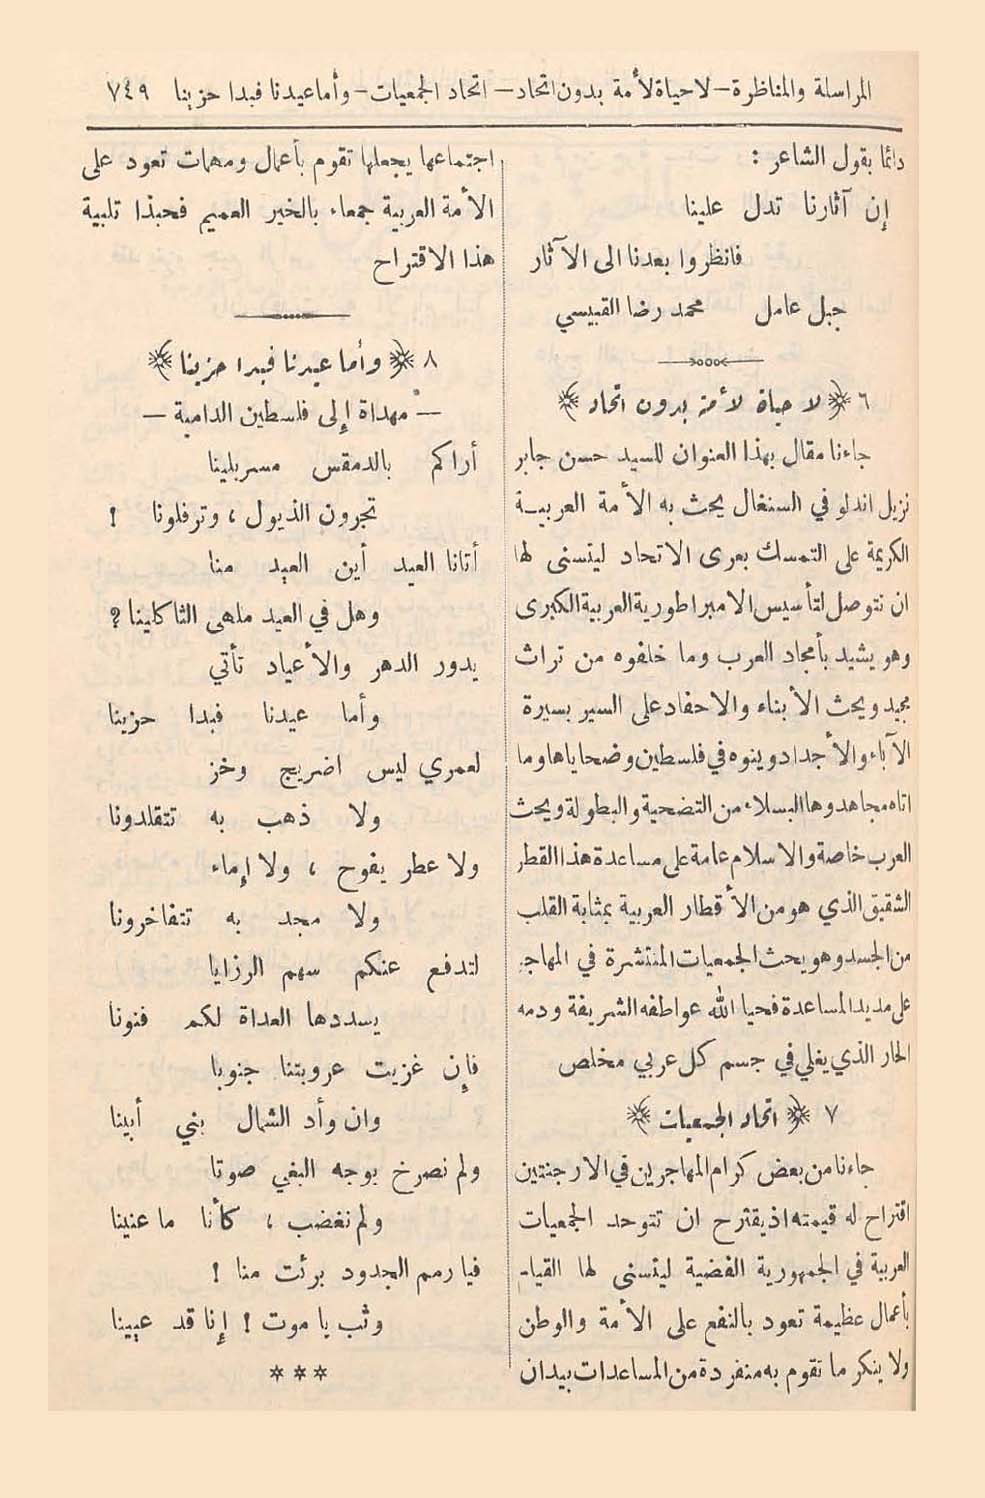 المراسلة والمناظرة – لا حياة لأمة بدون اتحاد – اتحاد الجمعيات – وأما عيدنا فبدا حزينا ٧٤٩
دائما بقول الشاعر :
إن آثارنا تدل علينا
فانظروا بعدنا الى الآثار
جبل عامل محمد رضا القبيسي
٦ ﴿ لا حياة لأمة بدون اتحاد ﴾
جاءنا مقال بهذا العنوان للسيد حسن جابر
نزيل اندلو في السنغال يحث به الأمة العربية
الكريمة على التمسك بعرى الاتحاد ليتسنى لها
ان نتوصل لتأسيس الامبراطورية العربية الكبرى
وهو يشيد بأمجاد العرب وما خلفوه من تراث
مجيد ويحث الأبناء والاحفاد على السير بسيرة
الآباء والأجداد وينوه في فلسطين وضحاياها وما
اتاه مجاهدوها البسلاء من التضحية والبطولة ويحث
العرب خاصة والاسلام عامة على مساعدة هذا القطر
الشقيق الذي هو من الأقطار العربية بمثابة القلب
من الجسد وهو يحث الجمعيات المنتشرة في المهاجر
على مد يد المساعدة فحيا الله عواطفه الشريفة ودمه
الحار الذي يغلي في جسم كل عربي مخلص
٧ ﴿ اتحاد الجمعيات ﴾
جاءنا من بعض كرام المهاجرين في الارجنتين
اقتراح له قيمته اذ يقترح ان تتوحد الجمعيات
العربية في الجمهورية الفضية ليتسنى لها القيام
بأعمال عظيمة تعود بالنفع على الأمة والوطن
ولا ينكر ما تقوم به منفردة من المساعدات بيد ان
اجتماعها يجعلها تقوم بأعمال ومهمات تعود على
الأمة العربية جمعاء بالخير العميم فحبذا تلبية
هذا الاقتراح
٨ ﴿ وأما عيدنا فبدا حزينا ﴾
– مهداة إلى فلسطين الدامية –
أراكم بالدمقس مسربلينا
تجرون الذيول ، وترفلونا !
أتانا العيد أين العيد منا
وهل في العيد ملهى الثاكلينا ?
يدور الدهر والأعياد تأتي
وأما عيدنا فبدا حزينا
لعمري ليس اضريج وخز
ولا ذهب به تتقلدونا
ولا عطر يفوح ، ولا إماء
ولا مجد به تتفاخرونا
لتدفع عنكم سهم الرزايا
يسددها العداة لكم فنونا
فإن غزيت عروبتنا جنوبا
وان وأد الشمال بني أبينا
ولم نصرخ بوجه البغي صوتا
ولم نغضب ، كأنا ما عنينا
فيا رمم الجدود برئت منا !
وثب يا موت ! إنا قد عيينا
***